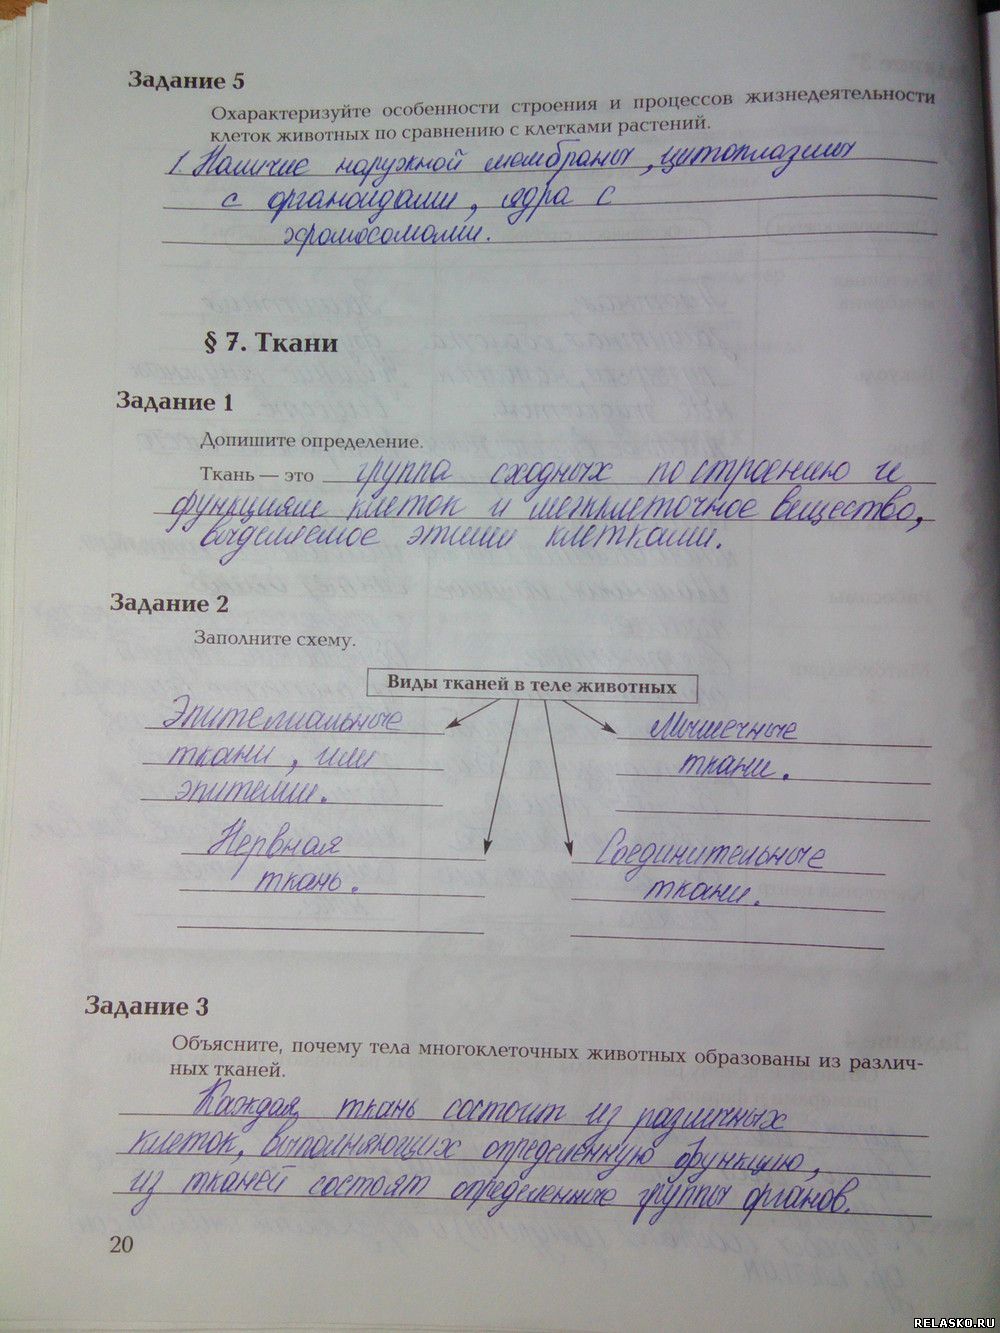 Задание 5
Охарактеризуйте особенности строения и процессов жизнедеятельности
клеток животных по сравнению с клетками растений.
1. Наличие наружной мембраны, цитоплазмы
с органоидами, ядра с
хромосомами.
§ 7. Ткани
Задание 1
Допишите определение.
Ткань — это группа сходных по строению и
функциям клеток и межклеточное вещество,
выделяемое этими клетками.
Задание 2
Заполните схему.
Виды тканей в теле животных
Эпителиальные
ткани, или
эпителии.
Мышечные
ткани.
Нервная
ткань.
Соединительные
ткани.
Задание 3
Объясните, почему тела многоклеточных животных образованы из различ-
ных тканей.
Каждая ткань состоит из различных
клеток, выполняющих определенную функцию,
из тканей состоят определенные группы органов.
20
RELASKO.RU